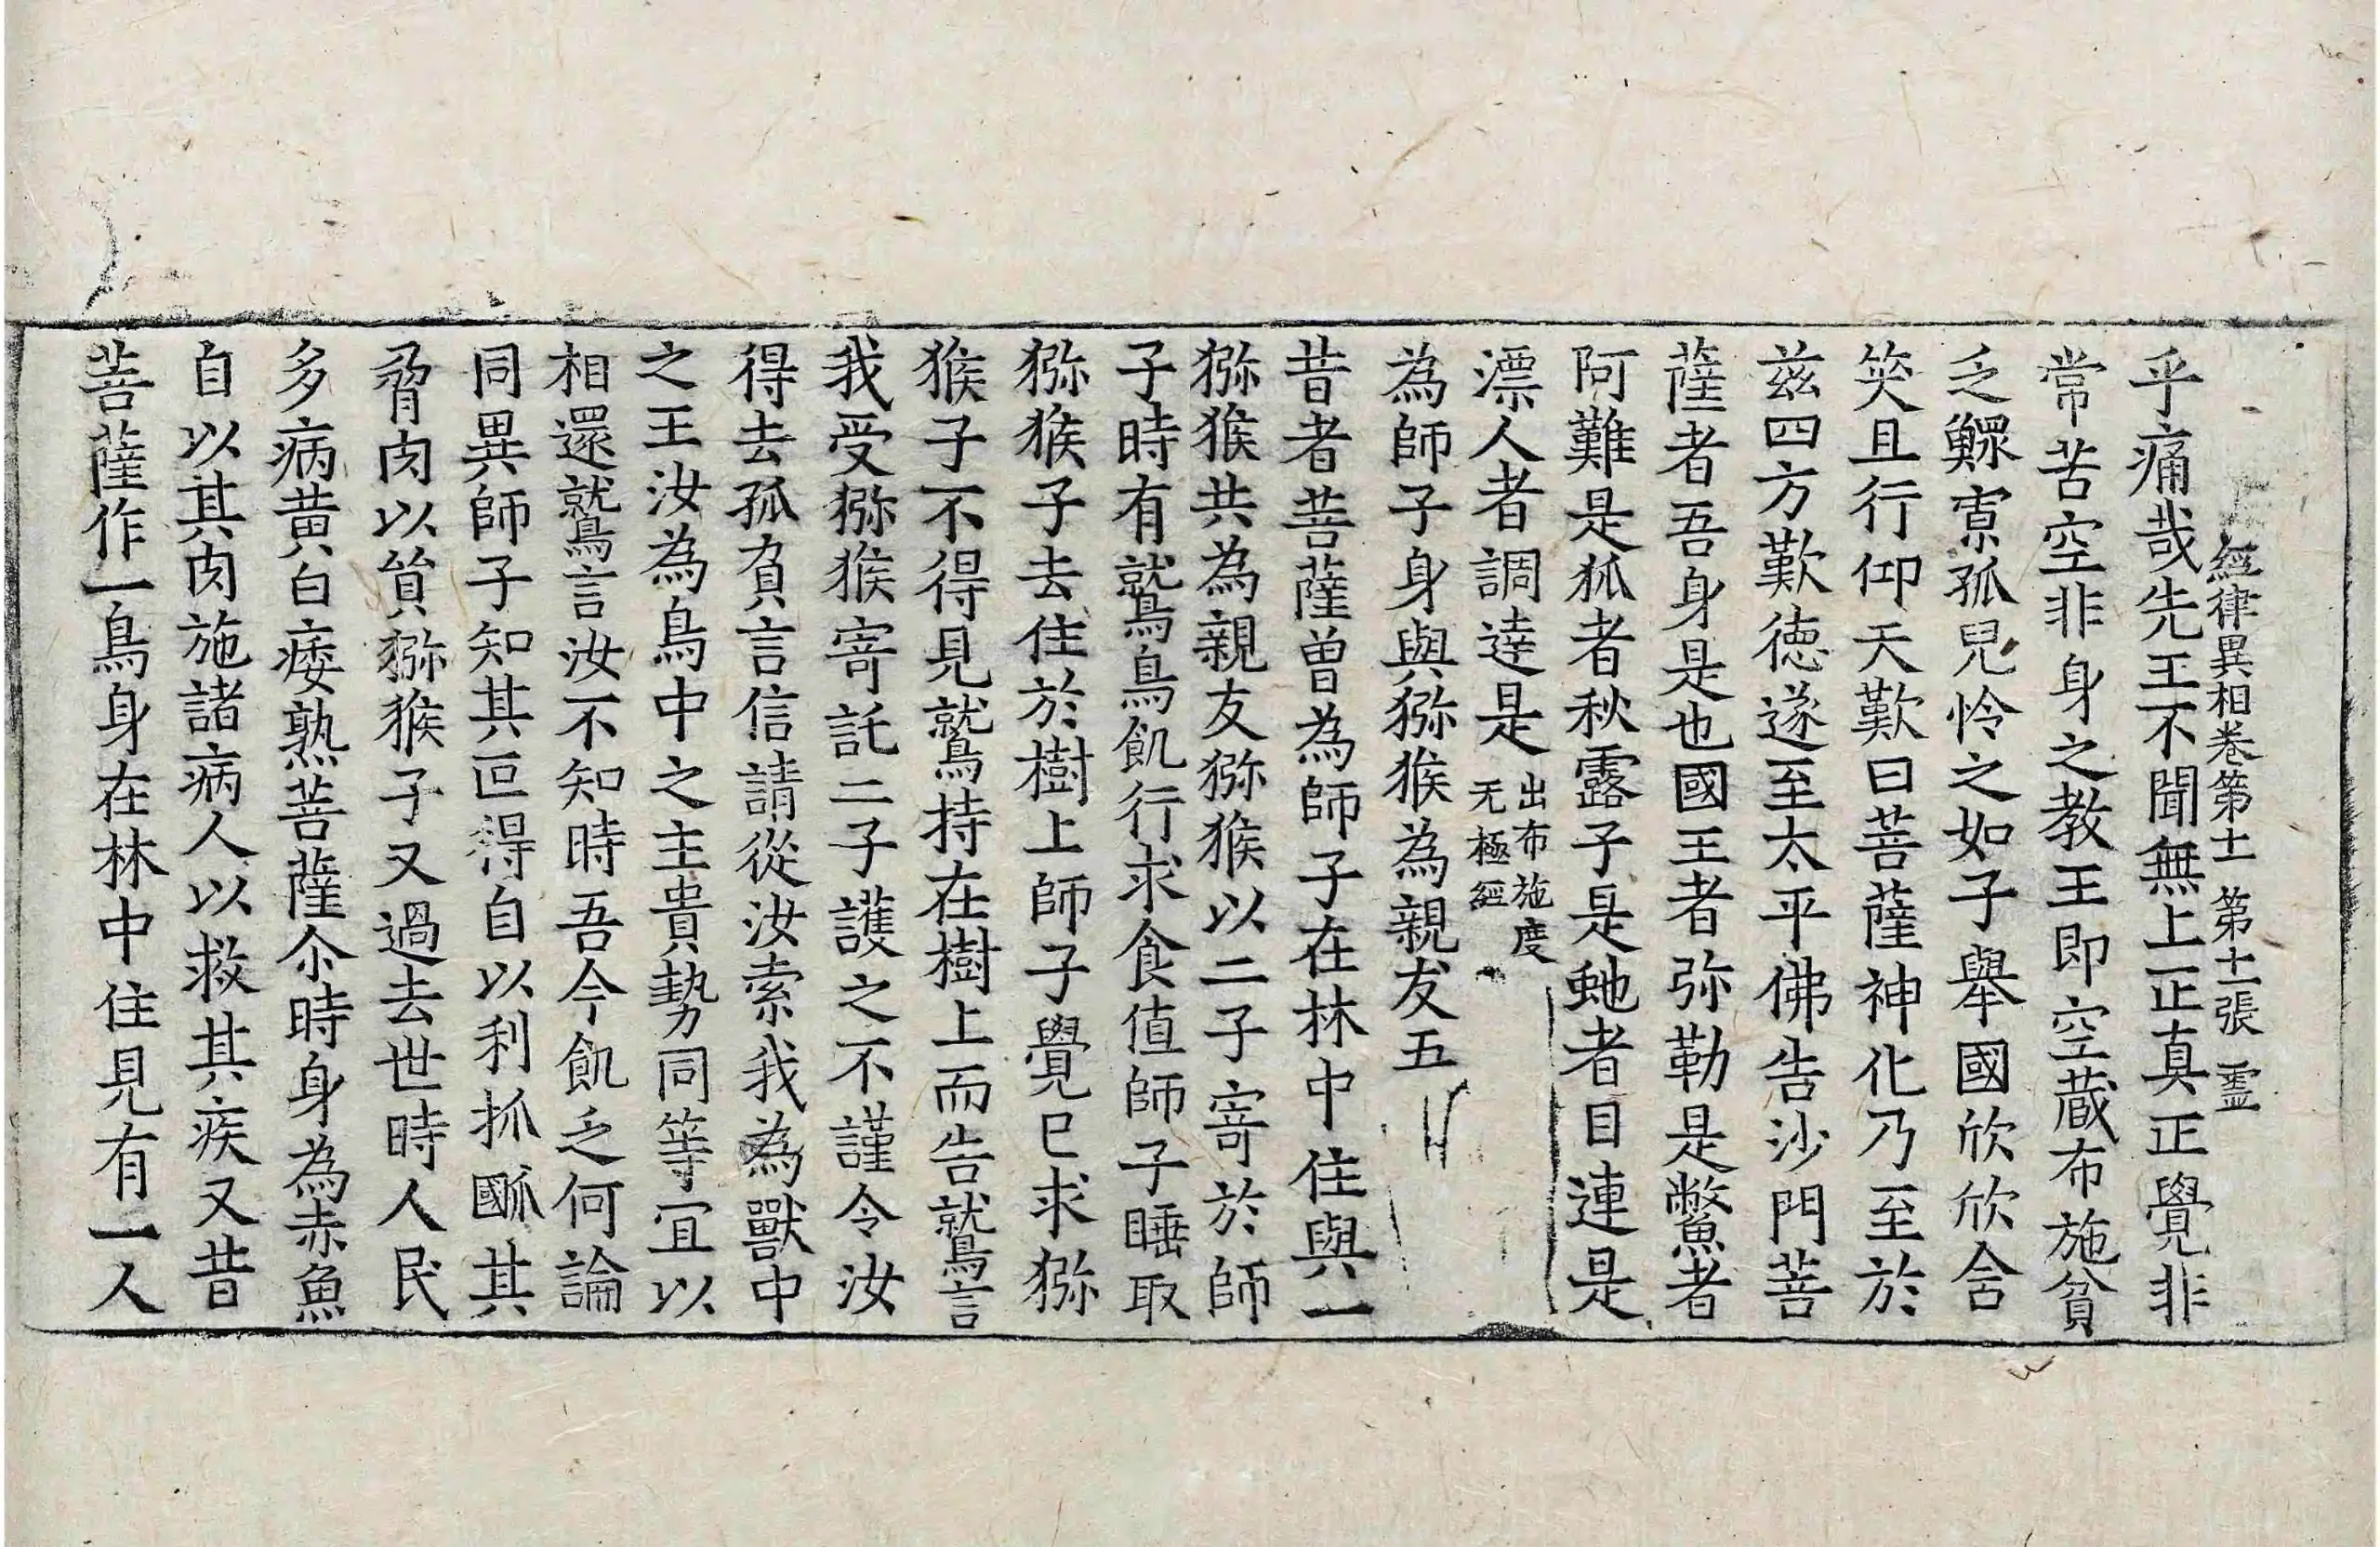 經律異相卷第十一 第十一張 靈
乎痛哉先王不聞無上正真正覺非
常苦空非身之教王即空藏布施貧
乏鰥寡孤兒怜之如子舉國欣欣含
笑且行仰天歎曰菩薩神化乃至於
茲四方歎德遂至太平佛告沙門菩
薩者吾身是也國王者弥勒是鱉者
阿難是狐者秋露子是虵者目連是
漂人者調達是 出布施度
无極經
為師子身與猕猴為親友五
昔者菩薩曾為師子在林中住與一
猕猴共為親友猕猴以二子寄於師
子時有鷲鳥飢行求食值師子睡取
猕猴子去住於樹上師子覺已求猕
猴子不得見鷲持在樹上而告鷲言
我受猕猴寄託二子護之不謹令汝
得去孤負言信請從汝索我為獸中
之王汝為鳥中之主貴勢同等宜以
相還鷲言汝不知時吾今飢乏何論
同異師子知其叵得自以利抓㧽其
脅肉以貿猕猴子又過去世時人民
多病黃白痿熟菩薩尒時身為赤魚
自以其肉施諸病人以救其疾又昔
菩薩作一鳥身在林中住見有一人